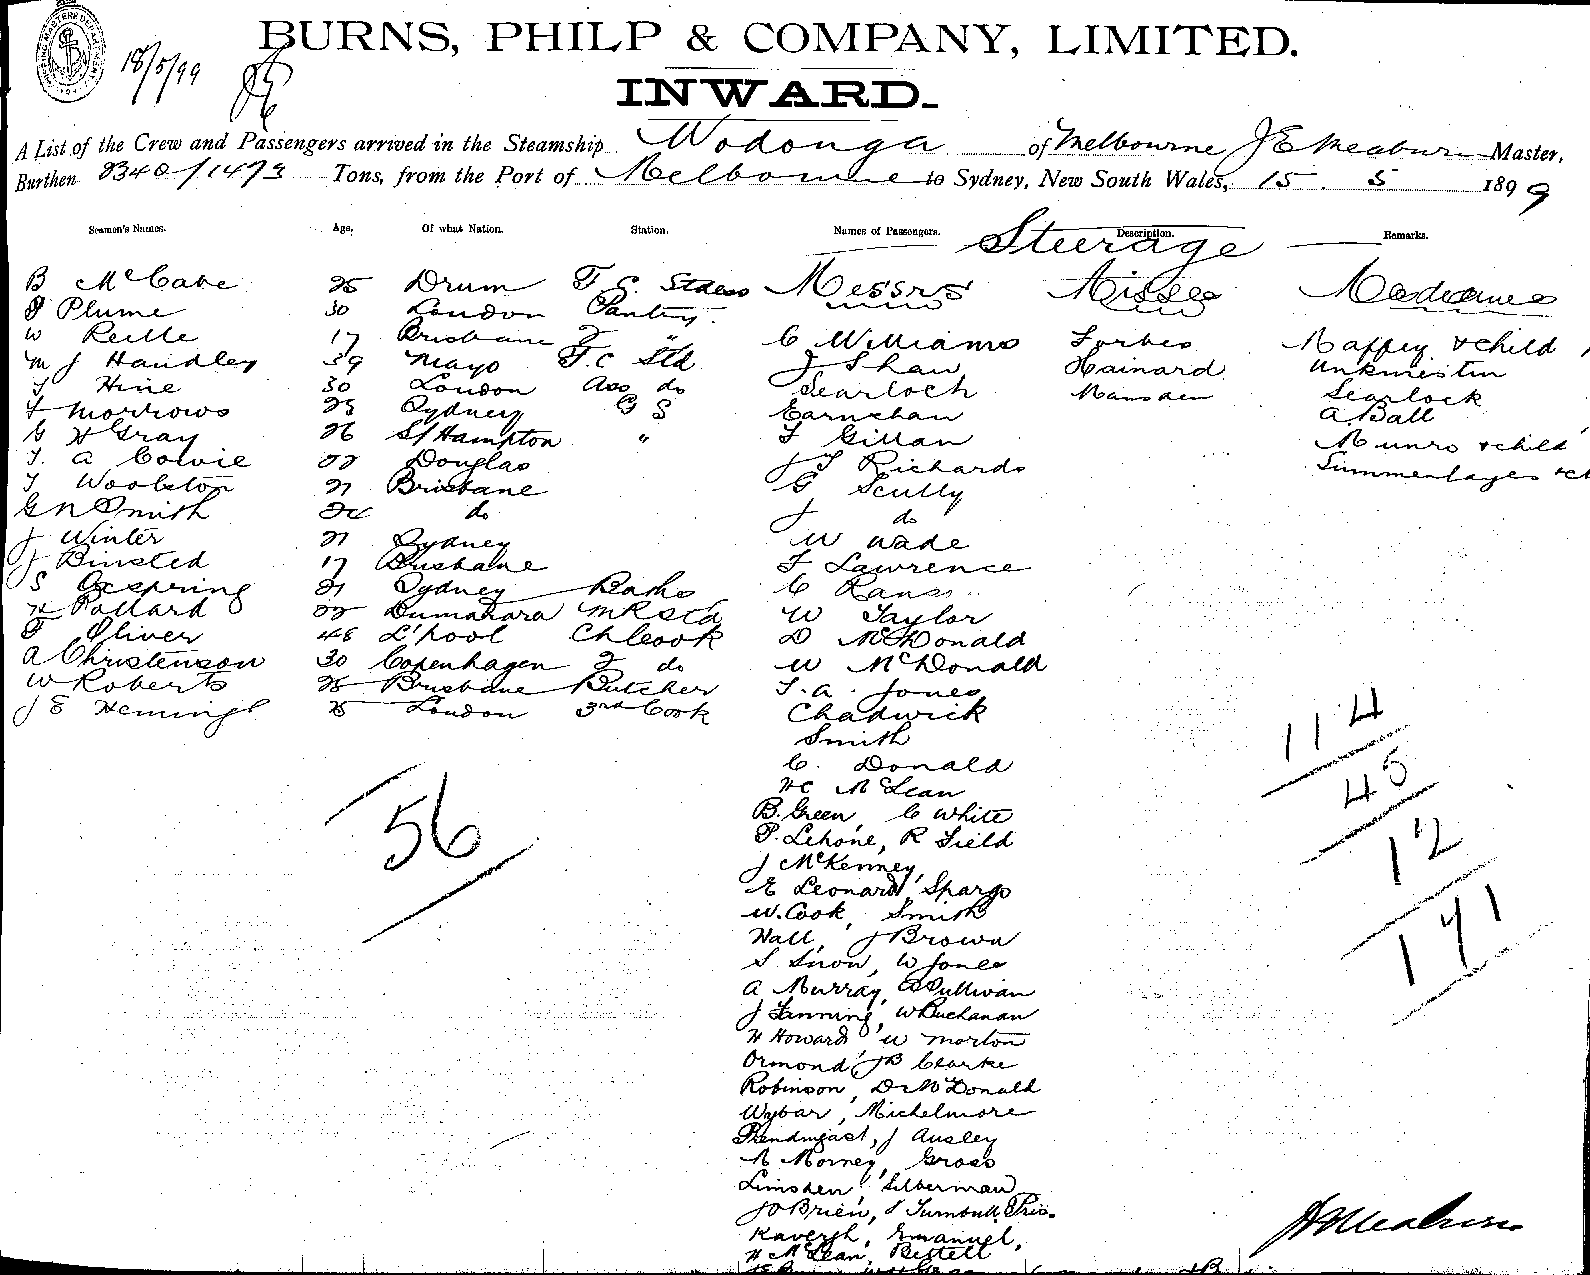 18/5/99
BURNS, PHILP & COMPANY, LIMITED.
INWARD.
A List of the Crew and Passengers arrived in the Steamship Wodonga of Melbourne J E Meaburn Master,
Burthen 2340/1473 Tons, from the Port of Melbourne to Sydney, New South Wales, 15 5 1899
Seamen's Names. Age. Of what Nation. Station. Names of Passengers. Description. Remarks.
Steerage
B McCabe 25 Drum F. C. Stdess Messrs Misses Mesdames
Plume 30 London Pantry
W Reille 17 Brisbane 2 " C Williams Forbes Maffey & child
M J Handley 39 Mayo F.C Std J Shaw Hainard
Hine 30 London Ass do Searloch Marsden Searlock
Morrows 25 Sydney G S Carnehan A. Ball
G H Gray 26 S/Hampton " F Gillan Munro & child
T. A Cowie 22 Douglas J T Richards
T Woolston 21 Brisbane G Scully
G N Smith 24 do J do
J Winter 21 Sydney W Wade
J Binsted 17 Brisbane F Lawrence
S Ocspring 21 Sydney Baths C Rans
H Pollard 22 W Taylor
F Oliver 48 L'pool Ch Cook D McDonald
A Christenson 30 Copenhagen 2 do W McDonald
W Roberts 25 Brisbane Butcher T. A. Jones
J E Hemingl 25 London 3rd Cook Chadwick
Smith
C. Donald
H C McLean
B. Green, C White
P. Lehone, R Field
J McKenney,
E Leonard, Spargo
W. Cook, Smith
Hall, J Brown
S Snow, W Jones
A Murray, Sullivan
J Fanning, W Buchanan
H Howard W Morton
Ormond, J B Clarke
Robinson, D McDonald
Wybar, Michelmore
Prendergast, J Ausley
M Morney, Gross
Limsden, Silberman
J O'Brien, J Turnbull,
Kavergh, Emanuel,
H McLean, Bestell
56
114
45
12
171